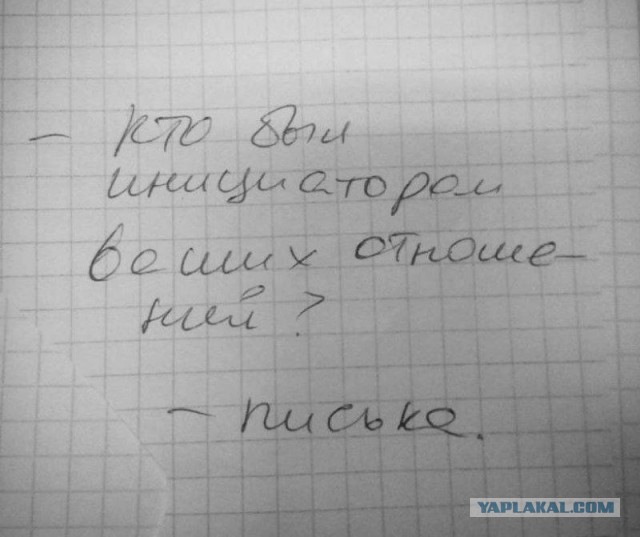 — Кто был
инициатором
ваших отноше-
ний?
— писька.
YAPLAKAL.COM